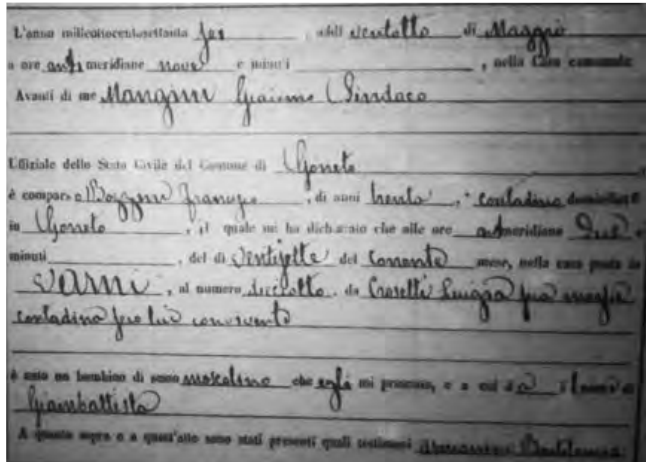 L'anno milleottocentosettanta sei, addì ventotto di Maggio
a ore anti meridiane nove e minuti , nella Casa comunale
Avanti di me Mangini Giacomo Sindaco
Uffiziale dello Stato Civile del Comune di Gorreto
è comparso Bozzini Francesco, di anni trenta, contadino domiciliato
in Gorreto, il quale mi ha dichiarato che alle ore antimeridiane due e
minuti , del dì ventisette del corrente mese, nella casa posta in
Varni, al numero diciotto, da Crosetti Luigia sua moglie
contadina seco lui convivente
è nato un bambino di sesso mascolino che egli mi presenta, e a cui dà i nomi di
Giambattista
A quanto sopra e a quest'atto sono stati presenti quali testimoni